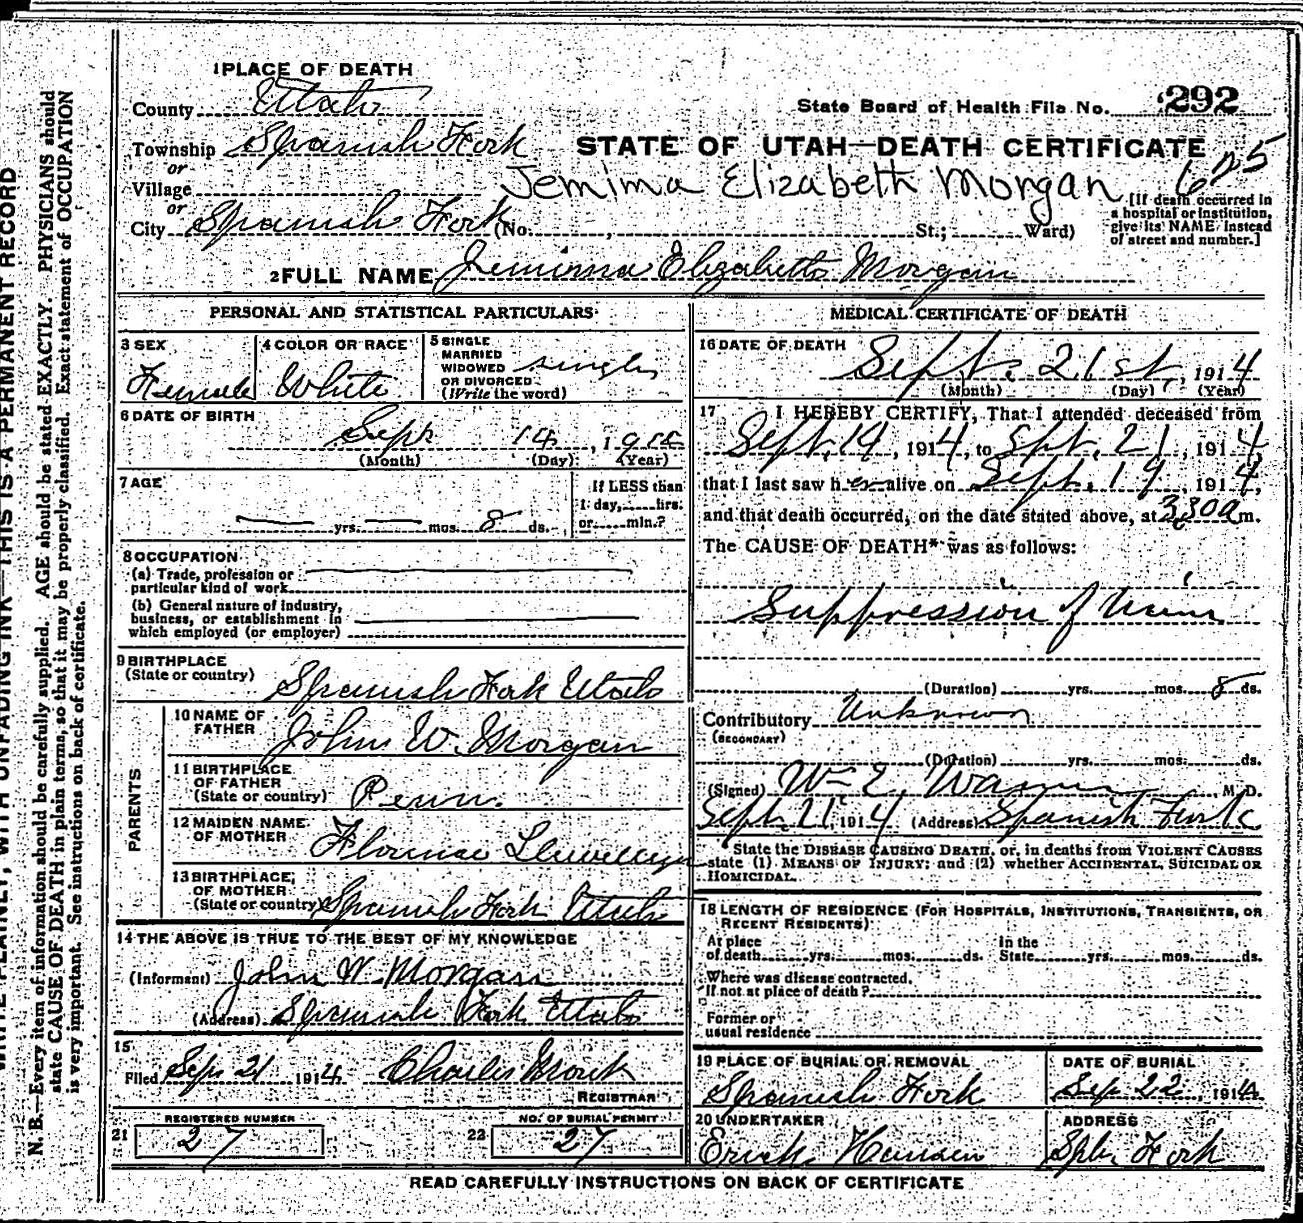 1 PLACE OF DEATH
County Utah
State Board of Health File No. 292
Township Spanish Fork
STATE OF UTAH—DEATH CERTIFICATE
or
Village
Jemima Elizabeth Morgan 625
or
City Spanish Fork (No. , St.; Ward)
[If death occurred in
a hospital or institution,
give its NAME instead
of street and number.]
2 FULL NAME Jemima Elizabeth Morgan
PERSONAL AND STATISTICAL PARTICULARS
3 SEX
Female
4 COLOR OR RACE
White
5 SINGLE
MARRIED
WIDOWED
OR DIVORCED
(Write the word)
single
6 DATE OF BIRTH
Sept 14, 1914
(Month) (Day) (Year)
7 AGE
yrs. mos. 8 ds.
If LESS than
1 day, hrs.
or min.?
8 OCCUPATION
(a) Trade, profession or
particular kind of work
(b) General nature of industry,
business, or establishment in
which employed (or employer)
9 BIRTHPLACE
(State or country)
Spanish Fork Utah
PARENTS
10 NAME OF
FATHER
John W. Morgan
11 BIRTHPLACE
OF FATHER
(State or country)
Penn.
12 MAIDEN NAME
OF MOTHER
Florence Llewellyn
13 BIRTHPLACE
OF MOTHER
(State or country)
Spanish Fork Utah
14 THE ABOVE IS TRUE TO THE BEST OF MY KNOWLEDGE
(Informant) John W. Morgan
(Address) Spanish Fork Utah
15
Filed Sep 21 1914 Charles Monk
REGISTRAR
REGISTERED NUMBER
21 27
NO. OF BURIAL PERMIT
22 27
MEDICAL CERTIFICATE OF DEATH
16 DATE OF DEATH
Sept. 21st, 1914
(Month) (Day) (Year)
17 I HEREBY CERTIFY, That I attended deceased from
Sept. 19, 1914, to Spt. 21, 1914
that I last saw h er alive on Sept. 19, 1914,
and that death occurred, on the date stated above, at 3:30 a m.
The CAUSE OF DEATH* was as follows:
Suppression of Urin
(Duration) yrs. mos. 8 ds.
Contributory Unknown
(SECONDARY)
(Duration) yrs. mos. ds.
(Signed) W E Warner M. D.
Sept. 21, 1914 (Address) Spanish Fork
State the DISEASE CAUSING DEATH, or, in deaths from VIOLENT CAUSES
state (1) MEANS OF INJURY; and (2) whether ACCIDENTAL, SUICIDAL OR
HOMICIDAL.
18 LENGTH OF RESIDENCE (FOR HOSPITALS, INSTITUTIONS, TRANSIENTS, OR
RECENT RESIDENTS)
At place
of death yrs. mos. ds.
In the
State yrs. mos. ds.
Where was disease contracted,
If not at place of death?
Former or
usual residence
19 PLACE OF BURIAL OR REMOVAL
Spanish Fork
DATE OF BURIAL
Sep 22, 1914
20 UNDERTAKER
Erick Hansen
ADDRESS
Spn Fork
READ CAREFULLY INSTRUCTIONS ON BACK OF CERTIFICATE
WRITE PLAINLY, WITH UNFADING INK—THIS IS A PERMANENT RECORD
N. B.—Every item of information should be carefully supplied. AGE should be stated EXACTLY. PHYSICIANS should
state CAUSE OF DEATH in plain terms, so that it may be properly classified. Exact statement of OCCUPATION
is very important. See instructions on back of certificate.